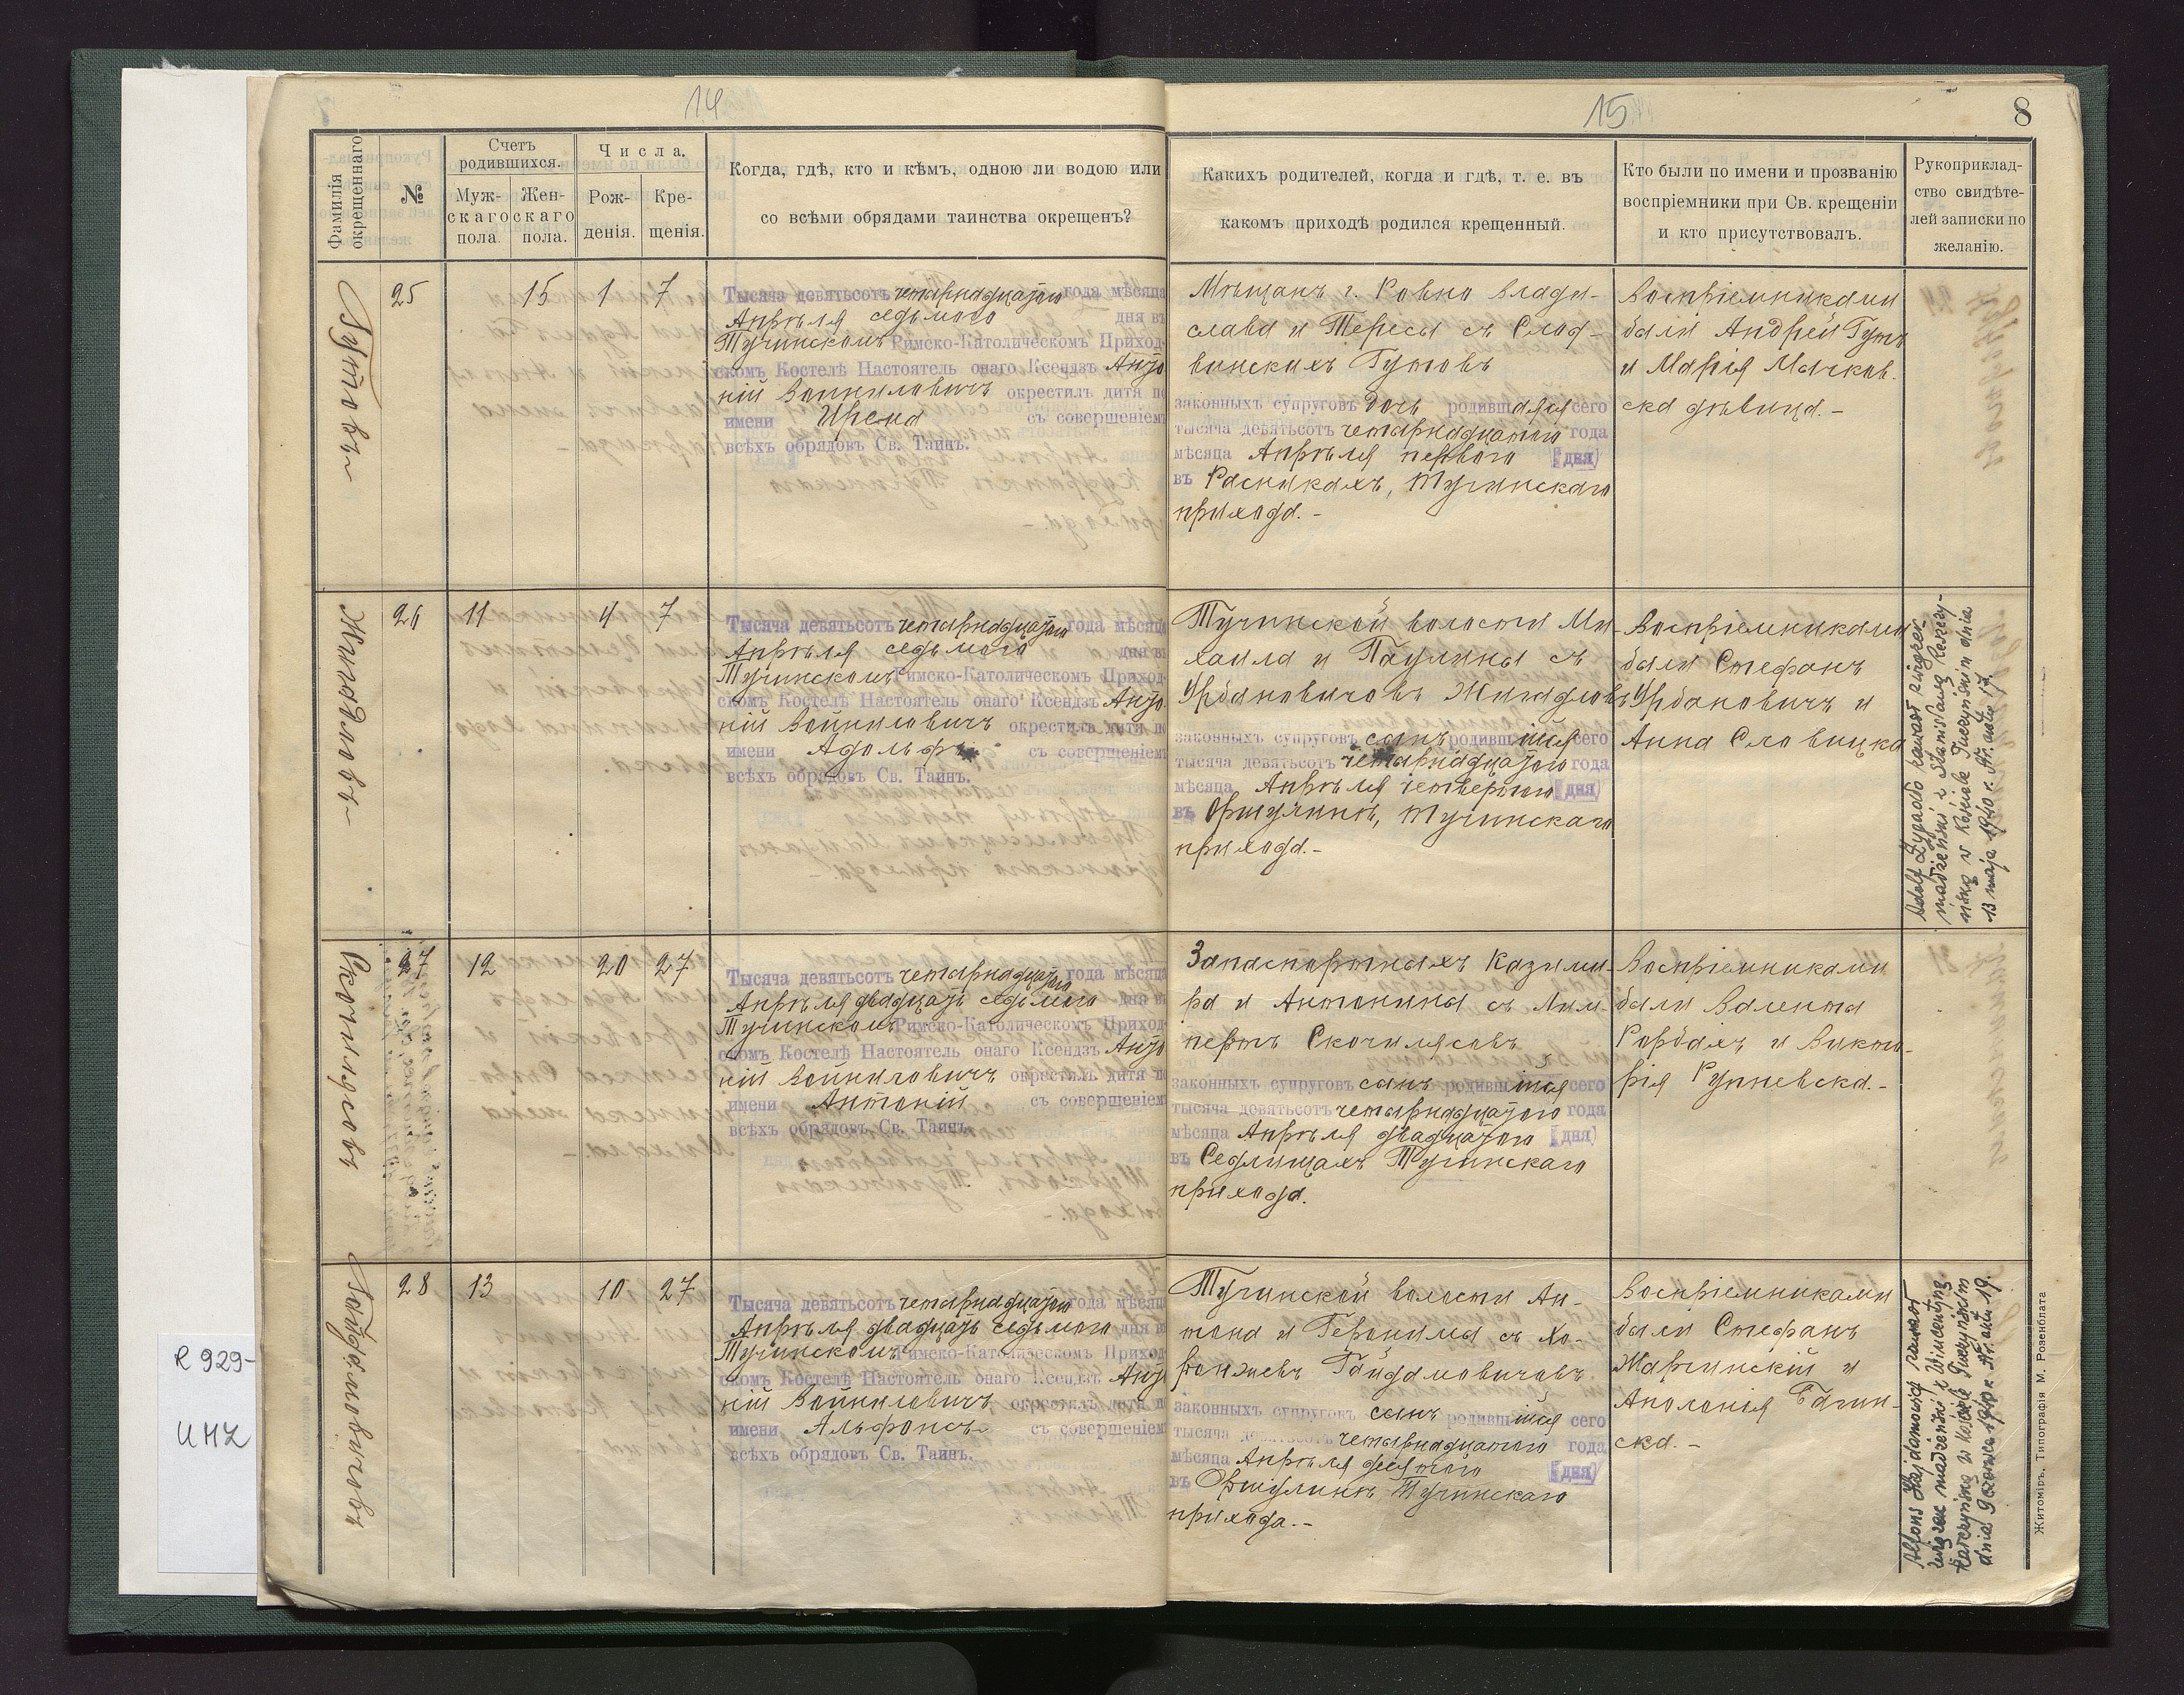 14
15
8
Фамилія окрещеннаго
№
Счетъ родившихся.
Муж-
скаго
пола.
Жен-
скаго
пола.
Числа.
Рож-
денія.
Кре-
щенія.
Когда, гдѣ, кто и кѣмъ, одною ли водою или
со всѣми обрядами таинства окрещенъ?
Какихъ родителей, когда и гдѣ, т. е. въ
какомъ приходѣ родился крещенный.
Кто были по имени и прозванію
воспріемники при Св. крещеніи
и кто присутствовалъ.
Рукоприклад-
ство свидѣте-
лей записки по
желанію.
Гутовъ
25
15
1
7
Тысяча девятьсотъ четырнадцатого года мѣсяца
Апрѣля седьмого дня въ
Тучинскомъ Римско-Католическомъ Приход-
скомъ Костелѣ Настоятель онаго Ксендзъ Анто
ній Войниловичъ окрестилъ дитя по
имени Ирена съ совершеніемъ
всѣхъ обрядовъ Св. Таинъ.
Мѣщанъ г. Ровно Влади-
слава и Тересы съ Слод-
винскихъ Гутовъ
законныхъ супруговъ дочь родившаяся сего
тысяча девятьсотъ четырнадцатого года
мѣсяца Апрѣля перваго (дня)
въ Расникахъ, Тучинскаго
прихода.-
Воспріемниками
были Андрей Гутъ
и Марія Мачков-
ска дѣвица.-
Жигадловъ
26
11
4
7
Тысяча девятьсотъ четырнадцатого года мѣсяца
Апрѣля седьмого дня въ
Тучинскомъ Римско-Католическомъ Приход-
скомъ Костелѣ Настоятель онаго Ксендзъ Анто
ній Войниловичъ окрестилъ дитя по
имени Адольфъ съ совершеніемъ
всѣхъ обрядовъ Св. Таинъ.
Тучинской волости Ми-
хаила и Паулины съ
Урбановичовъ Жигадловъ
законныхъ супруговъ сынъ родившійся сего
тысяча девятьсотъ четырнадцатого года
мѣсяца Апрѣля четвертого (дня)
въ Оршулинѣ, Тучинскаго
прихода.-
Воспріемниками
были Стефанъ
Урбановичъ и
Анна Словицка
Adolf Żygadło zawarł związek
małżeński z Stanisławą Kerczy-
ńską w Kościele Tuczyńskim dnia
13 maja 1940 r. Nr. aktu 17.
Скочилясовъ
27
12
20
27
Тысяча девятьсотъ четырнадцатого года мѣсяца
Апрѣля двадцать седьмого дня въ
Тучинскомъ Римско-Католическомъ Приход-
скомъ Костелѣ Настоятель онаго Ксендзъ Анто
ній Войниловичъ окрестилъ дитя по
имени Антоній съ совершеніемъ
всѣхъ обрядовъ Св. Таинъ.
Запаспортныхъ Казими-
ра и Антонины съ Лим-
пертъ Скочилясовъ
законныхъ супруговъ сынъ родившійся сего
тысяча девятьсотъ четырнадцатого года
мѣсяца Апрѣля двадцатого (дня)
въ Седлищахъ Тучинскаго
прихода.
Воспріемниками
были Валента
Горбахъ и Викто-
рія Рупневска.-
Гайдамовичовъ
28
13
10
27
Тысяча девятьсотъ четырнадцатого года мѣсяца
Апрѣля двадцать седьмого дня въ
Тучинскомъ Римско-Католическомъ Приход-
скомъ Костелѣ Настоятель онаго Ксендзъ Анто
ній Войниловичъ окрестилъ дитя по
имени Альфонсъ съ совершеніемъ
всѣхъ обрядовъ Св. Таинъ.
Тучинской волости Ан-
тона и Геронимы съ Хо-
ронжевъ Гайдамовичовъ
законныхъ супруговъ сынъ родившійся сего
тысяча девятьсотъ четырнадцатого года
мѣсяца Апрѣля десятого (дня)
въ Оршулинѣ Тучинскаго
прихода.-
Воспріемниками
были Стефанъ
Жарчинскій и
Аполонія Багин-
ска.-
Alfons Hajdamowicz zawarł
związek małżeński z Wincentyną
Karczyńską w Kościele Tuczyńskim
dnia 9 czerwca 1940 r. Nr. aktu 19.
Житоміръ, Типографія М. Розенблата
R 929-
UMZ